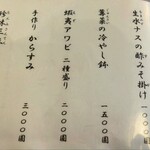 生水ナスの酢みそ掛け
一〇〇〇円
蓴菜の冷やし鉢
一五〇〇円
蝦夷アワビ 二種盛り
三〇〇〇円
手作り からすみ
三〇〇〇円
珍味三